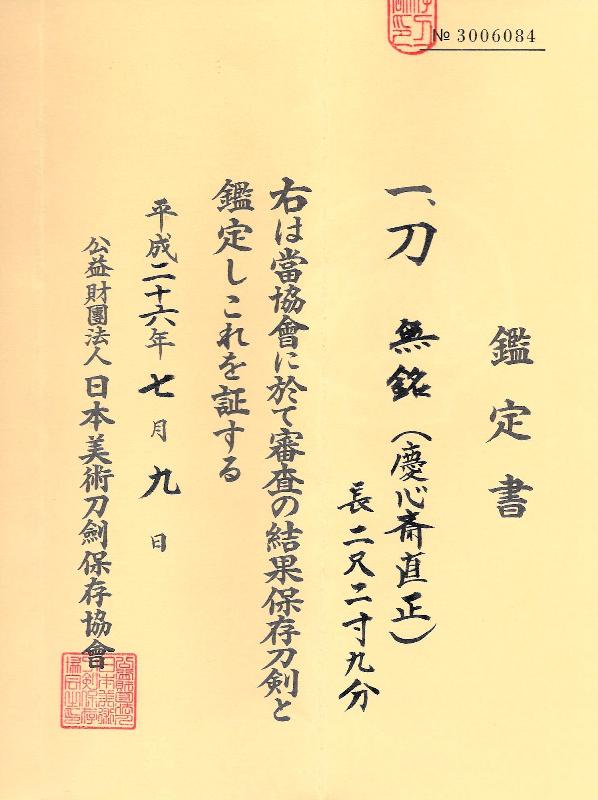 № 3006084
鑑定書
一、刀 無銘（慶心斎直正）
長二尺二寸九分
右は當協會に於て審査の結果保存刀剣と
鑑定しこれを証する
平成二十六年七月九日
公益財團法人日本美術刀劍保存協會